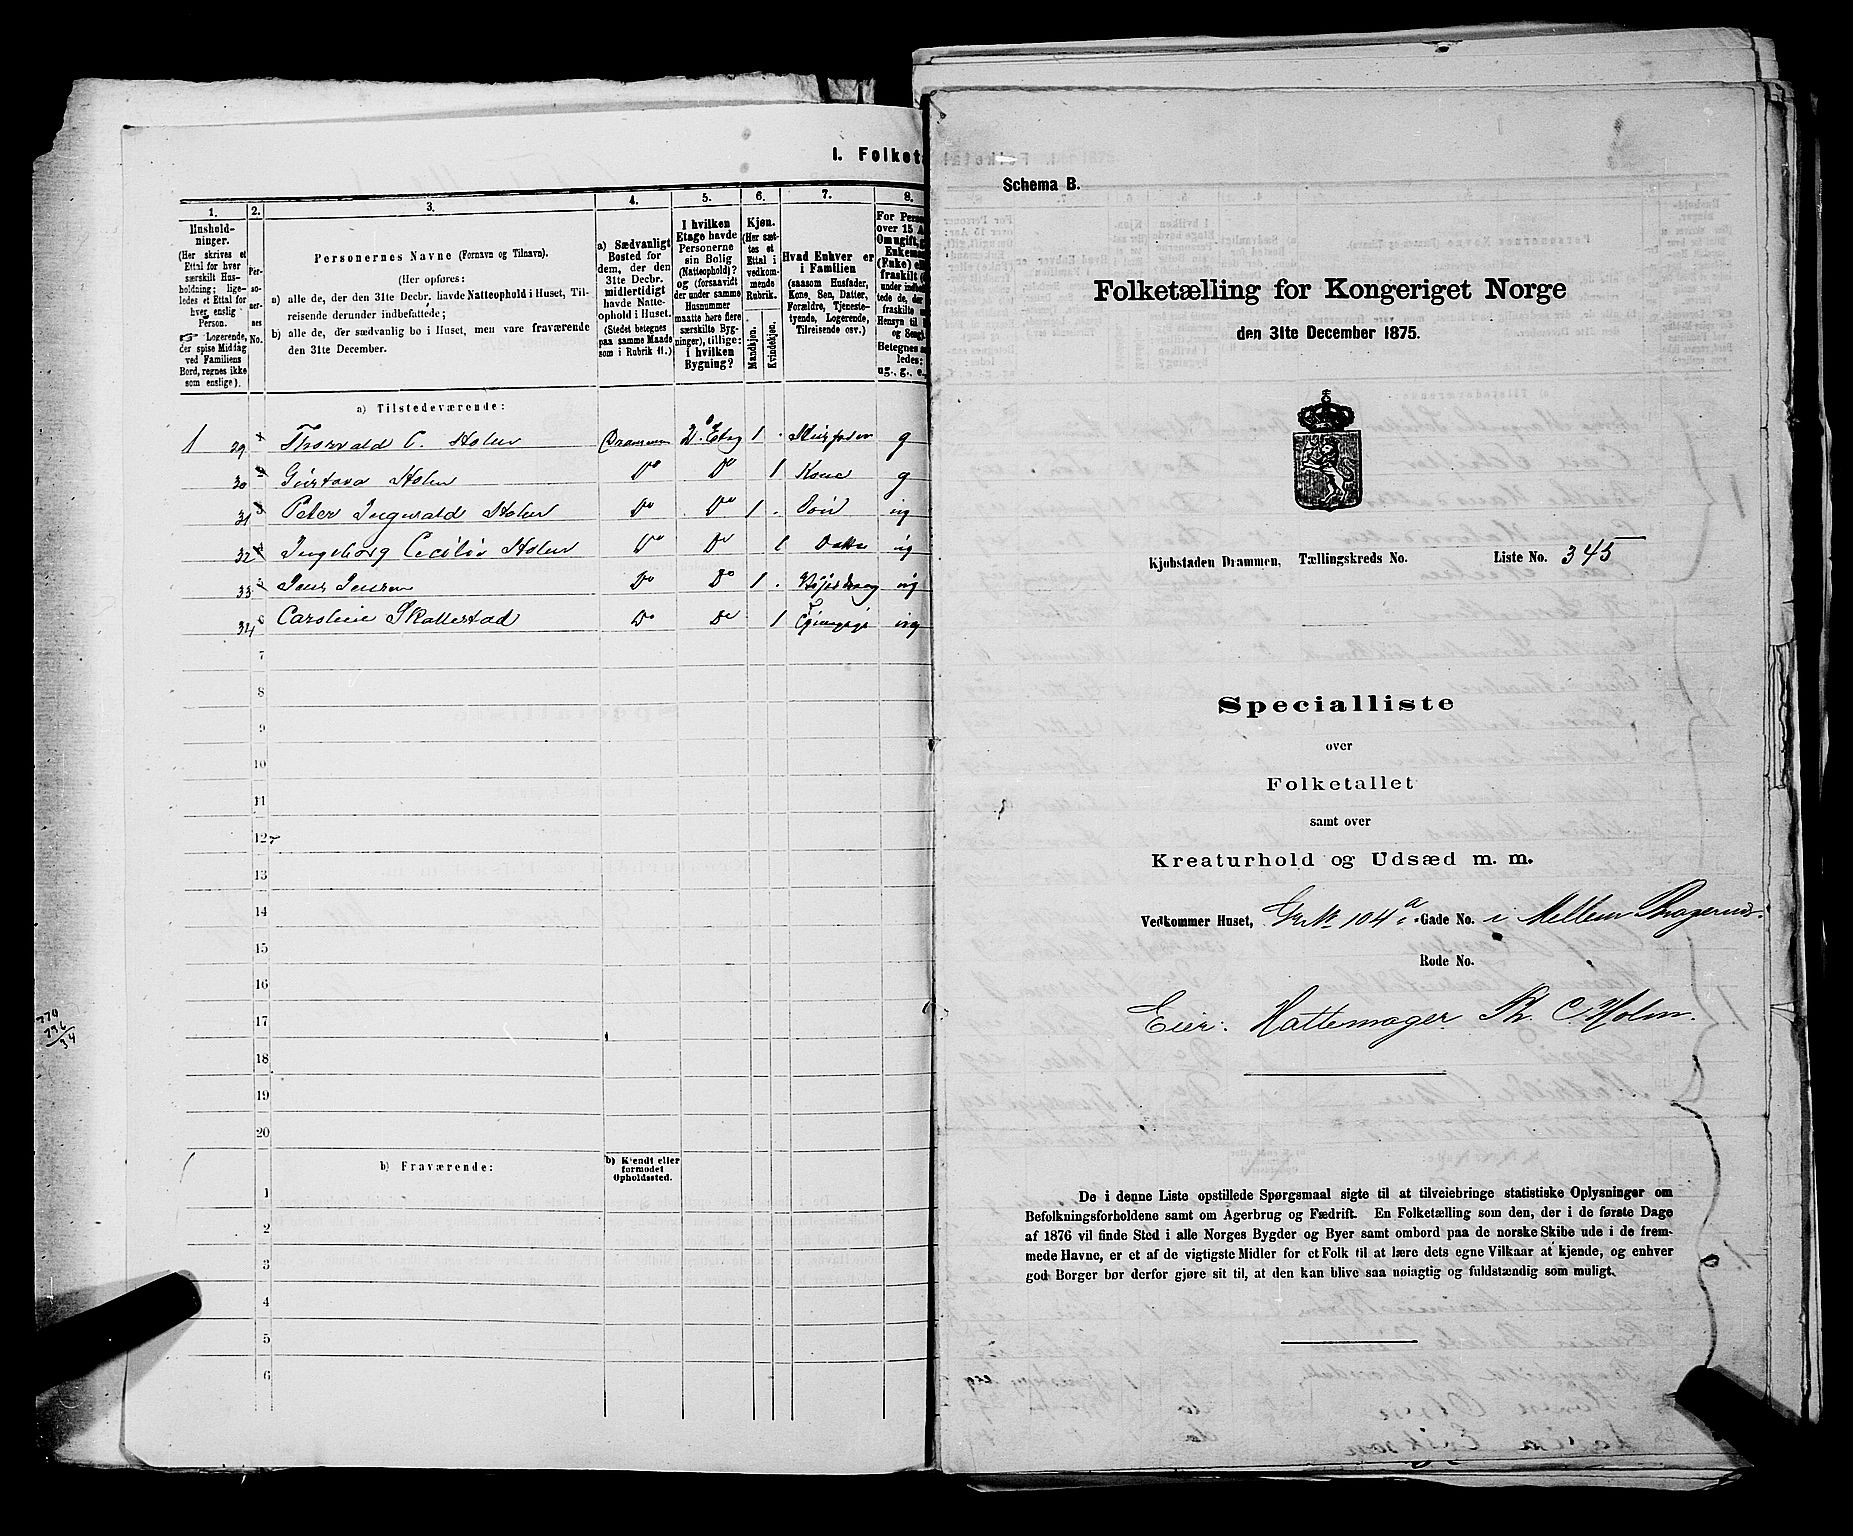 I. Folket
1.
Hushold-
ninger.
(Her skrives et
Ettal for hver
særskilt Hus-
holdning; lige-
ledes et Ettal for
hver enslig
Person.
Logerende,
der spise Middag
ved Familiens
Bord, regnes ikke
som enslige).
2.
Per-
so-
ner-
nes
No.
3.
Personernes Navne (Fornavn og Tilnavn).
(Her opføres:
a) alle de, der den 31te Decbr. havde Natteophold i Huset, Til-
reisende derunder indbefattede;
b) alle de, der sædvanlig bo i Huset, men vare fraværende
den 31te December.
4.
a) Sædvanligt
Bosted for
dem, der den
31te Decbr.
midlertidigt
havde Natte-
ophold i Huset.
(Stedet betegnes
paa samme Maade
som i Rubrik 11.)
5.
I hvilken
Etage havde
Personerne
sin Bolig
(Natteophold)?
og (forsaavidt
der under samme
Husnummer
maatte høre flere
særskilte Byg-
ninger), tillige:
i hvilken
Bygning?
6.
Kjøn.
(Her sæt-
tes et
Ettal i
vedkom-
mende
Rubrik.)
Mandkjøn.
Kvindekjøn.
7.
Hvad Enhver er
i Familien
(saasom Husfader,
Kone, Søn, Datter,
Forældre, Tjeneste-
tyende, Logerende,
Tilreisende osv.)
8.
For Perso
over 15 A
Om ugift, g
Enkema
(Enke) el
fraskilt
under indbe
tede de, der
fraskilte
Hensyn til
og Seng)
Betegnes
ledes:
ug., g., e.,
a) Tilstedeværende:
1 29 Thorvald C. Holm Drammen 2. Etag 1 . Husfader g
30 Gustava Holm Do Do 1 Kone g
31 Peter Ingvald Holm Do Do 1 . Søn ug
32 Ingeborg Cecilie Holm Do Do 1 Datter ug
33 Jens Jensen Do Do 1 . ug
34 Caroline Skallestad Do Do 1 Tjenpige ug
7
8
9
10
11
12
13
14
15
16
17
18
19
20
b) Fraværende:
b) Kjendt eller
formodet
Opholdssted.
1
2
3
4
5
6
Schema B.
Folketælling for Kongeriget Norge
den 31te December 1875.
Kjøbstaden Drammen, Tællingskreds No. Liste No. 345
Specialliste
over
Folketallet
samt over
Kreaturhold og Udsæd m. m.
Vedkommer Huset, Gr № 104a Gade No. i Mellem Bragernes.
Rode No.
Eier: Hattemager Th. C. Holm.
De i denne Liste opstillede Spørgsmaal sigte til at tilveiebringe statistiske Oplysninger om
Befolkningsforholdene samt om Agerbrug og Fædrift. En Folketælling som den, der i de første Dage
af 1876 vil finde Sted i alle Norges Bygder og Byer samt ombord paa de norske Skibe ude i de frem-
mede Havne, er et af de vigtigste Midler for et Folk til at lære dets egne Vilkaar at kjende, og enhver
god Borger bør derfor gjøre sit til, at den kan blive saa nøiagtig og fuldstændig som muligt.